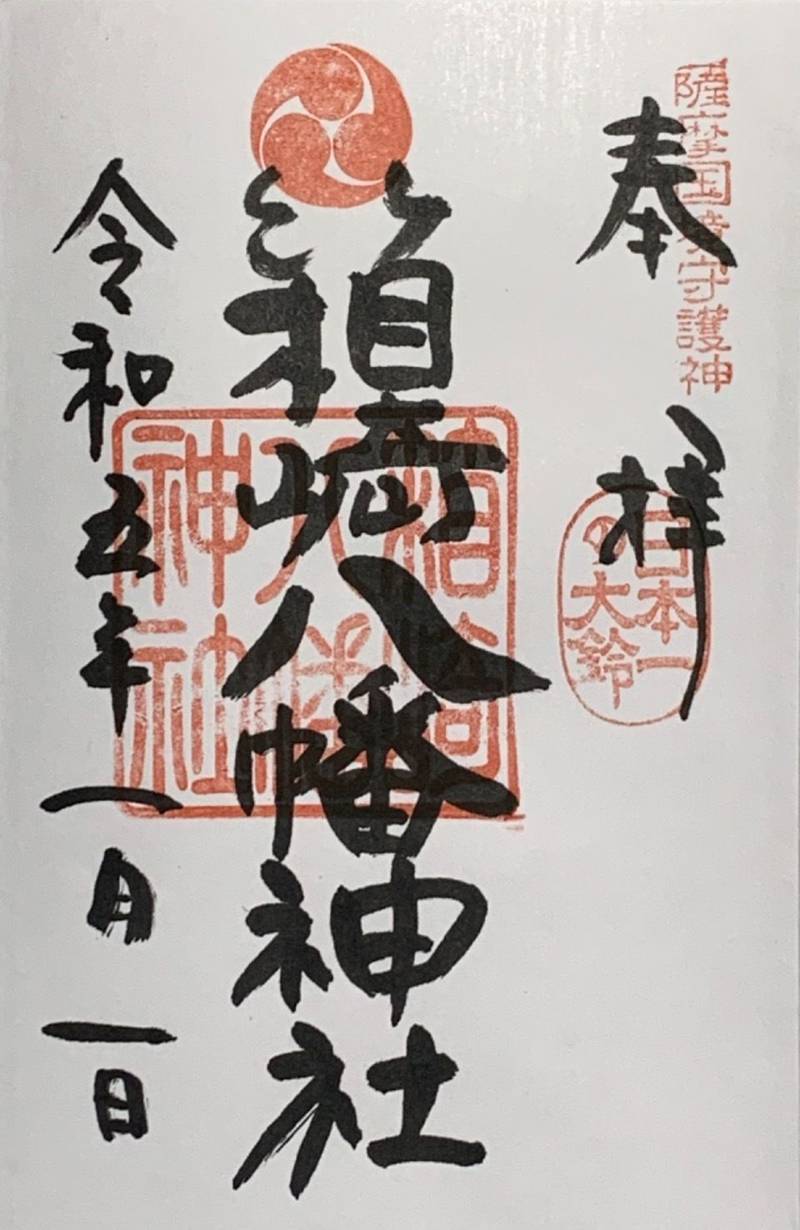 薩摩国境守護神
奉拝
日本一
の大鈴
箱崎八幡神社
箱崎
八幡
神社
令和五年一月一日